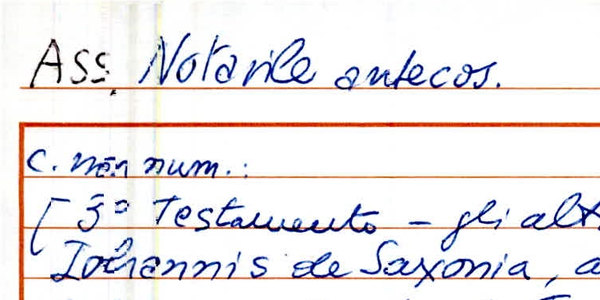 Ass. Notarile antecos.
c. non num.:
[3° Testamento - gli alt
Iohannis de Saxonia, a